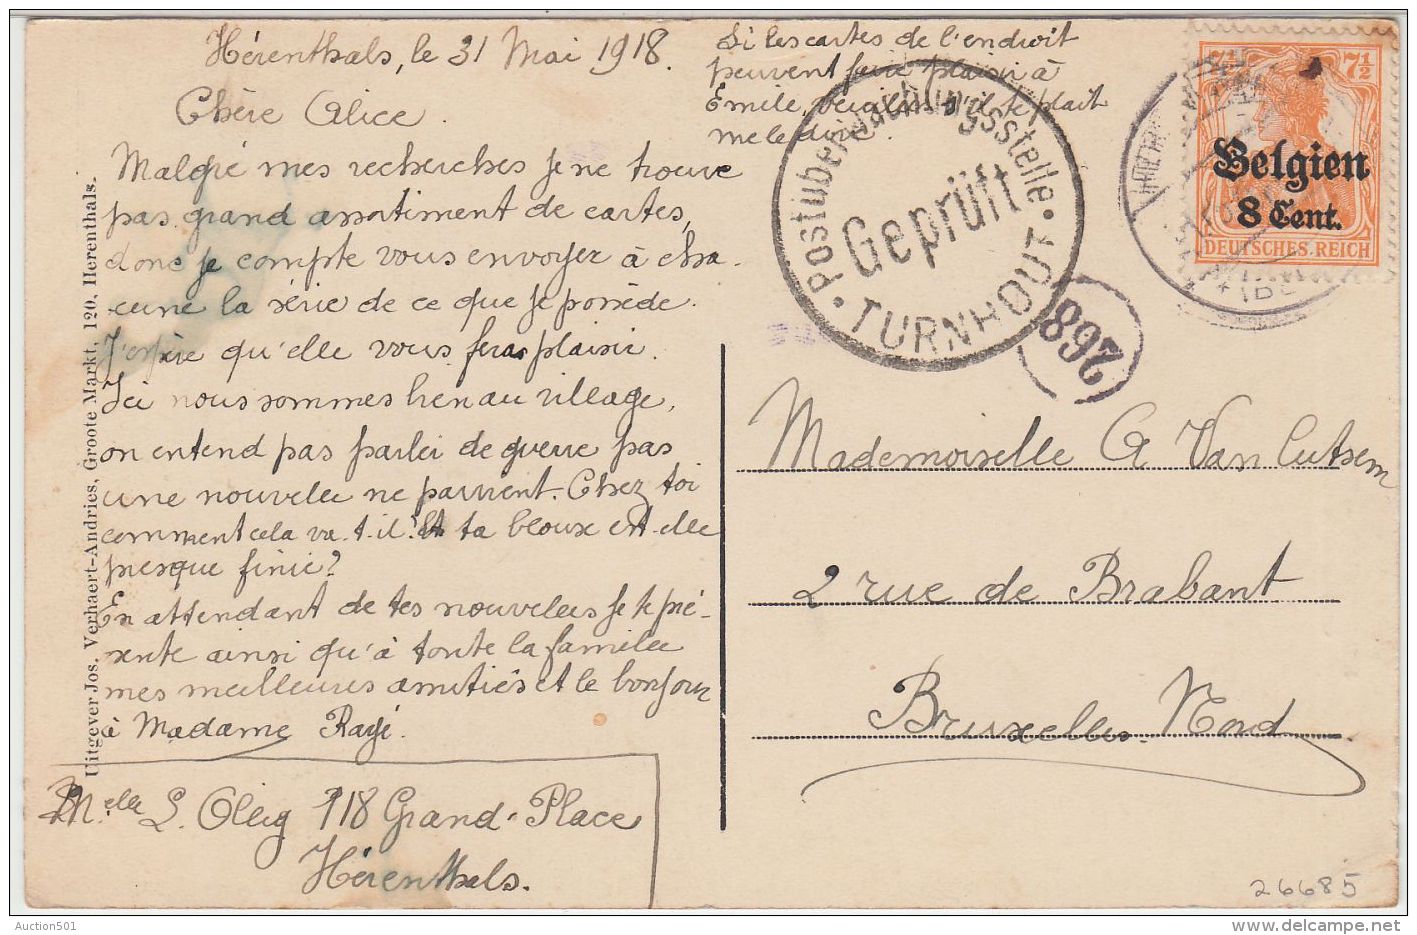 Hérenthals, le 31 Mai 1918.
Chère Alice.
Malgré mes recherches je ne trouve
pas grand assortiment de cartes,
donc je compte vous envoyer à cha
cune la série de ce que je possède.
J'espère qu'elle vous feras plaisir.
Ici nous sommes bien au village,
on entend pas parler de guerre pas
une nouvelle ne parvient. Chez toi
comment cela va-t-il? Et ta blouse est-elle
presque finie?
En attendant de tes nouvelles je te pré-
sente ainsi qu'à toute la famille
mes meilleures amitiés et le bonjour
à Madame Rayé.
Melle L. 118 Grand-Place
Hérenthals.
Si les cartes de l'endroit
peuvent faire plaisir à
Emile, s'il te plait
me le dire.
Uitgever Jos. Verhaert-Andries, Groote Markt, 120, Herenthals.
Postüberwachungsstelle
Geprüft
TURNHOUT
268
7½ 7½
Belgien
8 Cent.
DEUTSCHES REICH
Mademoiselle A Van Cutsem
2 rue de Brabant
Bruxelles. Nord
26685
Auction501
delcampe.net